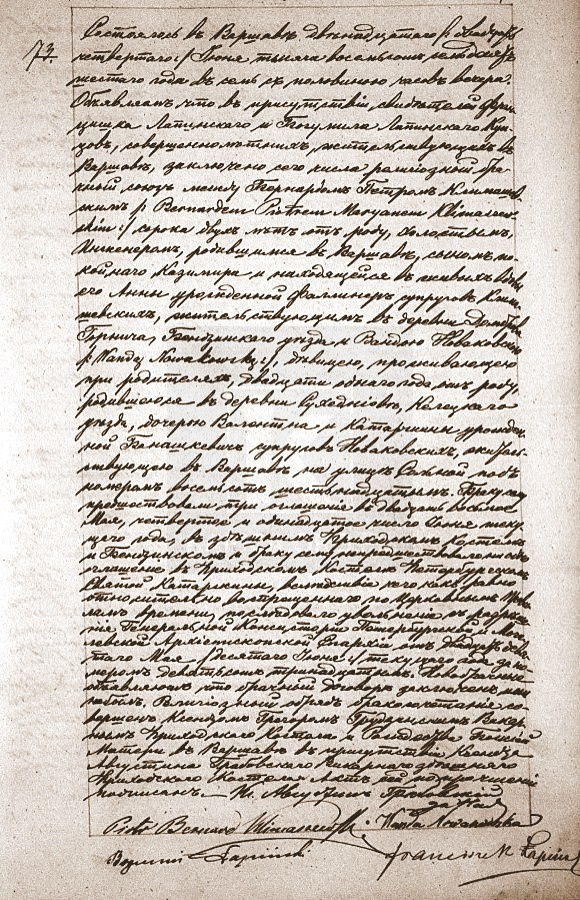 73.
Состоялось въ Варшавѣ двѣнадцатаго /: двадцать
четвертаго :/ Іюня тысяча восемьсотъ
шестаго года въ семь съ половиною часовъ вечера.
Объявляемъ что въ присутствіи свидѣтелей Фран
цишка Лапинскаго и Богумила Лапинскаго Куп
цовъ, совершеннолѣтнихъ, жительствующихъ въ
Варшавѣ, заключено сего числа религіозной бра
чный союзъ между Бернардомъ Петромъ Климашев
скимъ /: Bernardem Piotrem Maryanem Klimaszew
skim :/ сорока двухъ лѣтъ отъ роду, холостымъ,
Инженеромъ, родившимся въ Варшавѣ, сыномъ по
койнаго Казимира и находящейся въ живыхъ вдовы
его Анны урожденной супруговъ Клима
шевскихъ, жительствующимъ въ деревни
Бендинскаго уѣзда и Вандою Новаковскою
/: Wandą Nowakowską :/, дѣвицею, проживающею
при родителяхъ, двадцати одного года отъ роду,
родившеюся въ деревни Суходніовъ, Келецкаго
уѣзда, дочерью Валентина и Катаржины урожден
ной Банашкевичъ супруговъ Новаковскихъ, житель
ствующею въ Варшавѣ на улицѣ Сольной подъ
номеромъ восемьсотъ шестьнадцатымъ. Браку сему
предшествовали три оглашенія въ двадцать восьмое
Мая, четвертое и одинадцатое число Іюня теку
щаго года, въ здѣшнемъ Приходскомъ костелѣ
и Бендинскомъ и браку сему непредшествовало
оглашеніе въ Приходскомъ Костелѣ Петербургскомъ
Святой Катаржины, вслѣдствіе чего какъ равно
относительно воспрещеннаго по Церковнымъ Прави
ламъ времени, послѣдовало увольненіе съ разрѣше
нія Генеральной Консисторіи и Моги
левской Архіепископской Епархіи отъ двадцать девя
таго Мая /: десятаго Іюня :/ текущаго года за но
меромъ девятьсотъ тринадцатымъ. Новобрачные
объявляютъ что брачный договоръ заключенъ
небылъ. Религіозный обрядъ бракосочетанія со
вершенъ Ксендзомъ Григоромъ Викар
нымъ Приходскаго Костела Рождества Божіей
Матери въ Варшавѣ въ присутствіи Ксендза
Августина Гробовскаго Викарнаго здѣшняго
Приходскаго Костела. Актъ сей по прочтеніи
подписанъ. — Кс. Августинъ Гробовскій
Piotr Bernard Klimaszewski. Wanda Nowakowska
Bogumił Łapiński Franciszek Łapiński